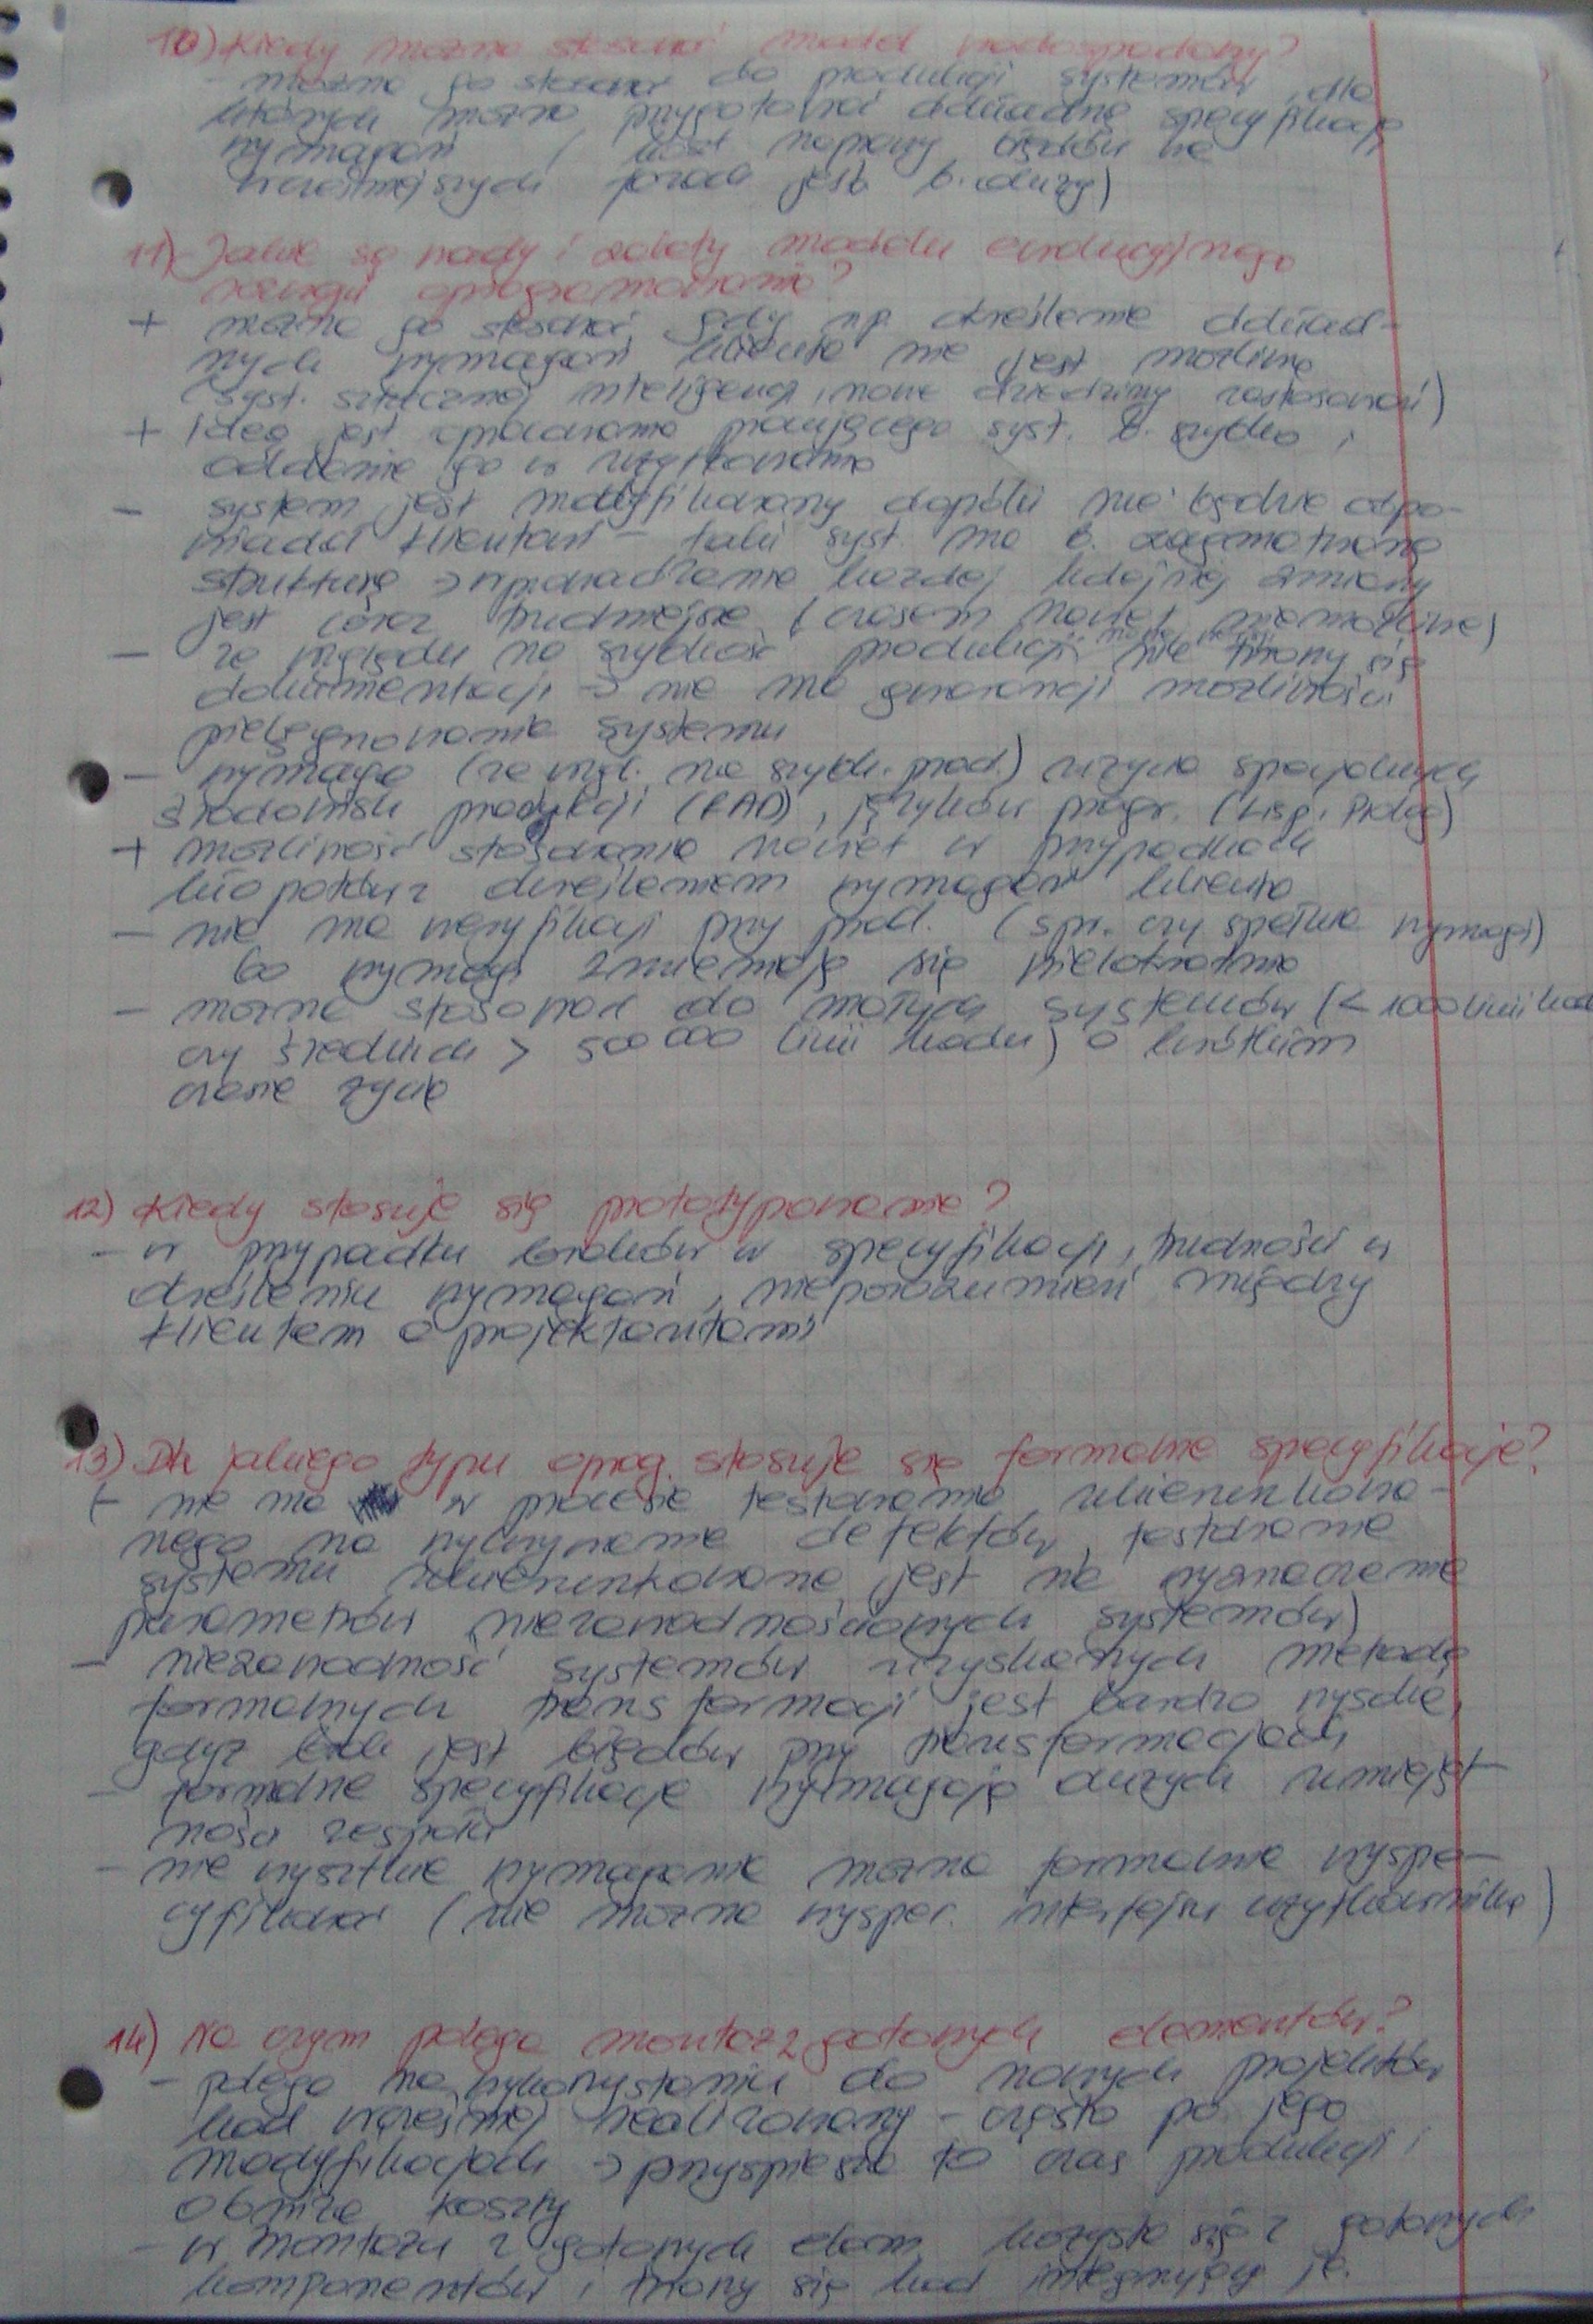 10) Kiedy można stosować model wodospadowy?
- można go stosować do produkcji systemów, dla
których można przygotować dokładną specyfikację
wymagań ( koszt naprawy błędów we
wcześniejszych fazach jest b. duży)
11) Jakie są wady i zalety modelu ewolucyjnego
rozwoju oprogramowania?
+ można go stosować, gdy np. określenie dokład-
nych wymagań klienta nie jest możliwe
(syst. sztucznej inteligencji, nowe dziedziny zastosowań)
+ ideą jest opracowanie pracującego syst. b. szybko i
oddanie go w użytkowanie
- system jest modyfikowany dopóki nie będzie odpo-
wiadał klientowi - taki syst. ma b. zagmatwaną
strukturę -> wprowadzenie każdej kolejnej zmiany
jest coraz trudniejsze (czasem nawet niemożliwe)
- ze względu na szybkość produkcji nie tworzy się
dokumentacji -> nie ma gwarancji możliwości
pielęgnowania systemu
- wymaga (ze wzgl. na szybk. prod.) użycia specjalnych
środowisk produkcji (RAD), języków progr. (Lisp, Prolog)
+ możliwość stosowania nawet w przypadkach
kłopotów z określeniem wymagań klienta
- nie ma weryfikacji przy prod. (spr. czy spełnia wymagi)
bo wymagi zmieniają się wielokrotnie
- można stosować do małych systemów (< 1000 linii kod
czy średnich > 500 000 linii kodu) o krótkim
czasie życia
12) Kiedy stosuje się prototypowanie?
- w przypadku braków w specyfikacji, trudności w
określeniu wymagań, nieporozumień między
klientem a projektantami
13) Dla jakiego typu oprog. stosuje się formalne specyfikacje?
(- nie ma w procesie testowania ukierunkowa-
nego na wykrywanie defektów, testowanie
systemu ukierunkowane jest na wyznaczenie
parametrów niezawodnościowych systemów)
- niezawodność systemów uzyskanych metodą
formalnych transformacji jest bardzo wysoka,
gdyż brak jest błędów przy transformacjach
- formalne specyfikacje wymagają dużych umiejęt-
ności zespołu
- nie wszystkie wymagania można formalnie wyspe-
cyfikować (nie można wyspec. interfejsu użytkownika)
14) Na czym polega montaż z gotowych elementów?
- polega na wykorzystaniu do nowych projektów
kod wcześniej realizowany - często po jego
modyfikacjach -> przyspiesza to czas produkcji i
obniża koszty
- w montażu z gotowych elem. korzysta się z gotowych
komponentów i tworzy się kod integrujący je.